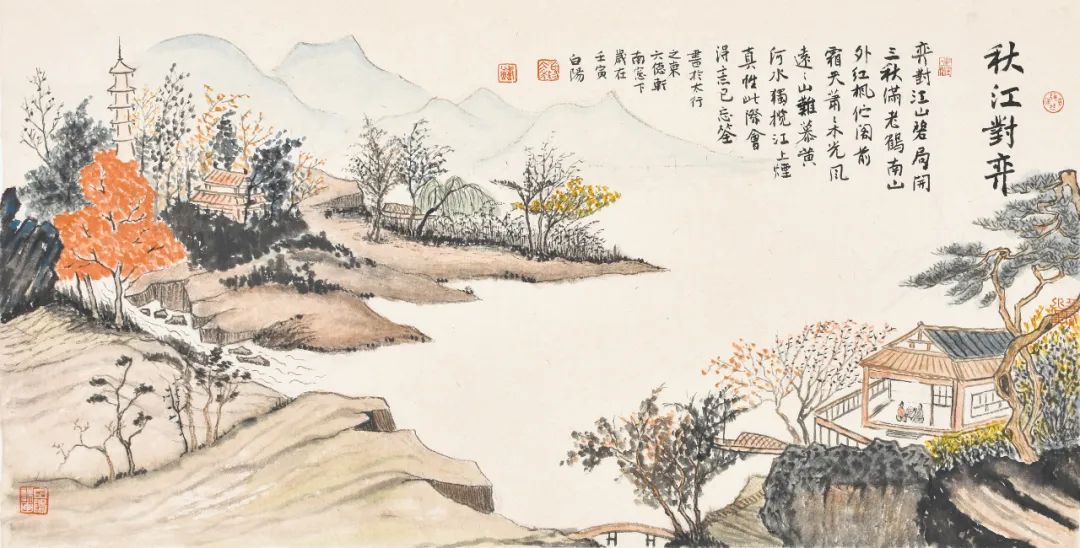 秋江對弈
弈對江山碁局開
三秋滿老鶴南山
外紅楓佇閣前
霜天蕭々木光風
遠々山難慕黃
河水獨攬江上煙
真性此際會
得意已忘筌
書於太行
之東
六億軒
南窓下
歲在
壬寅
白陽